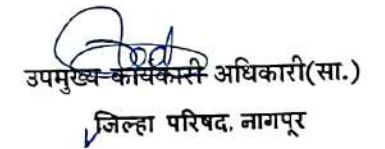 उपमुख्य कार्यकारी अधिकारी(सा.)
जिल्हा परिषद, नागपूर